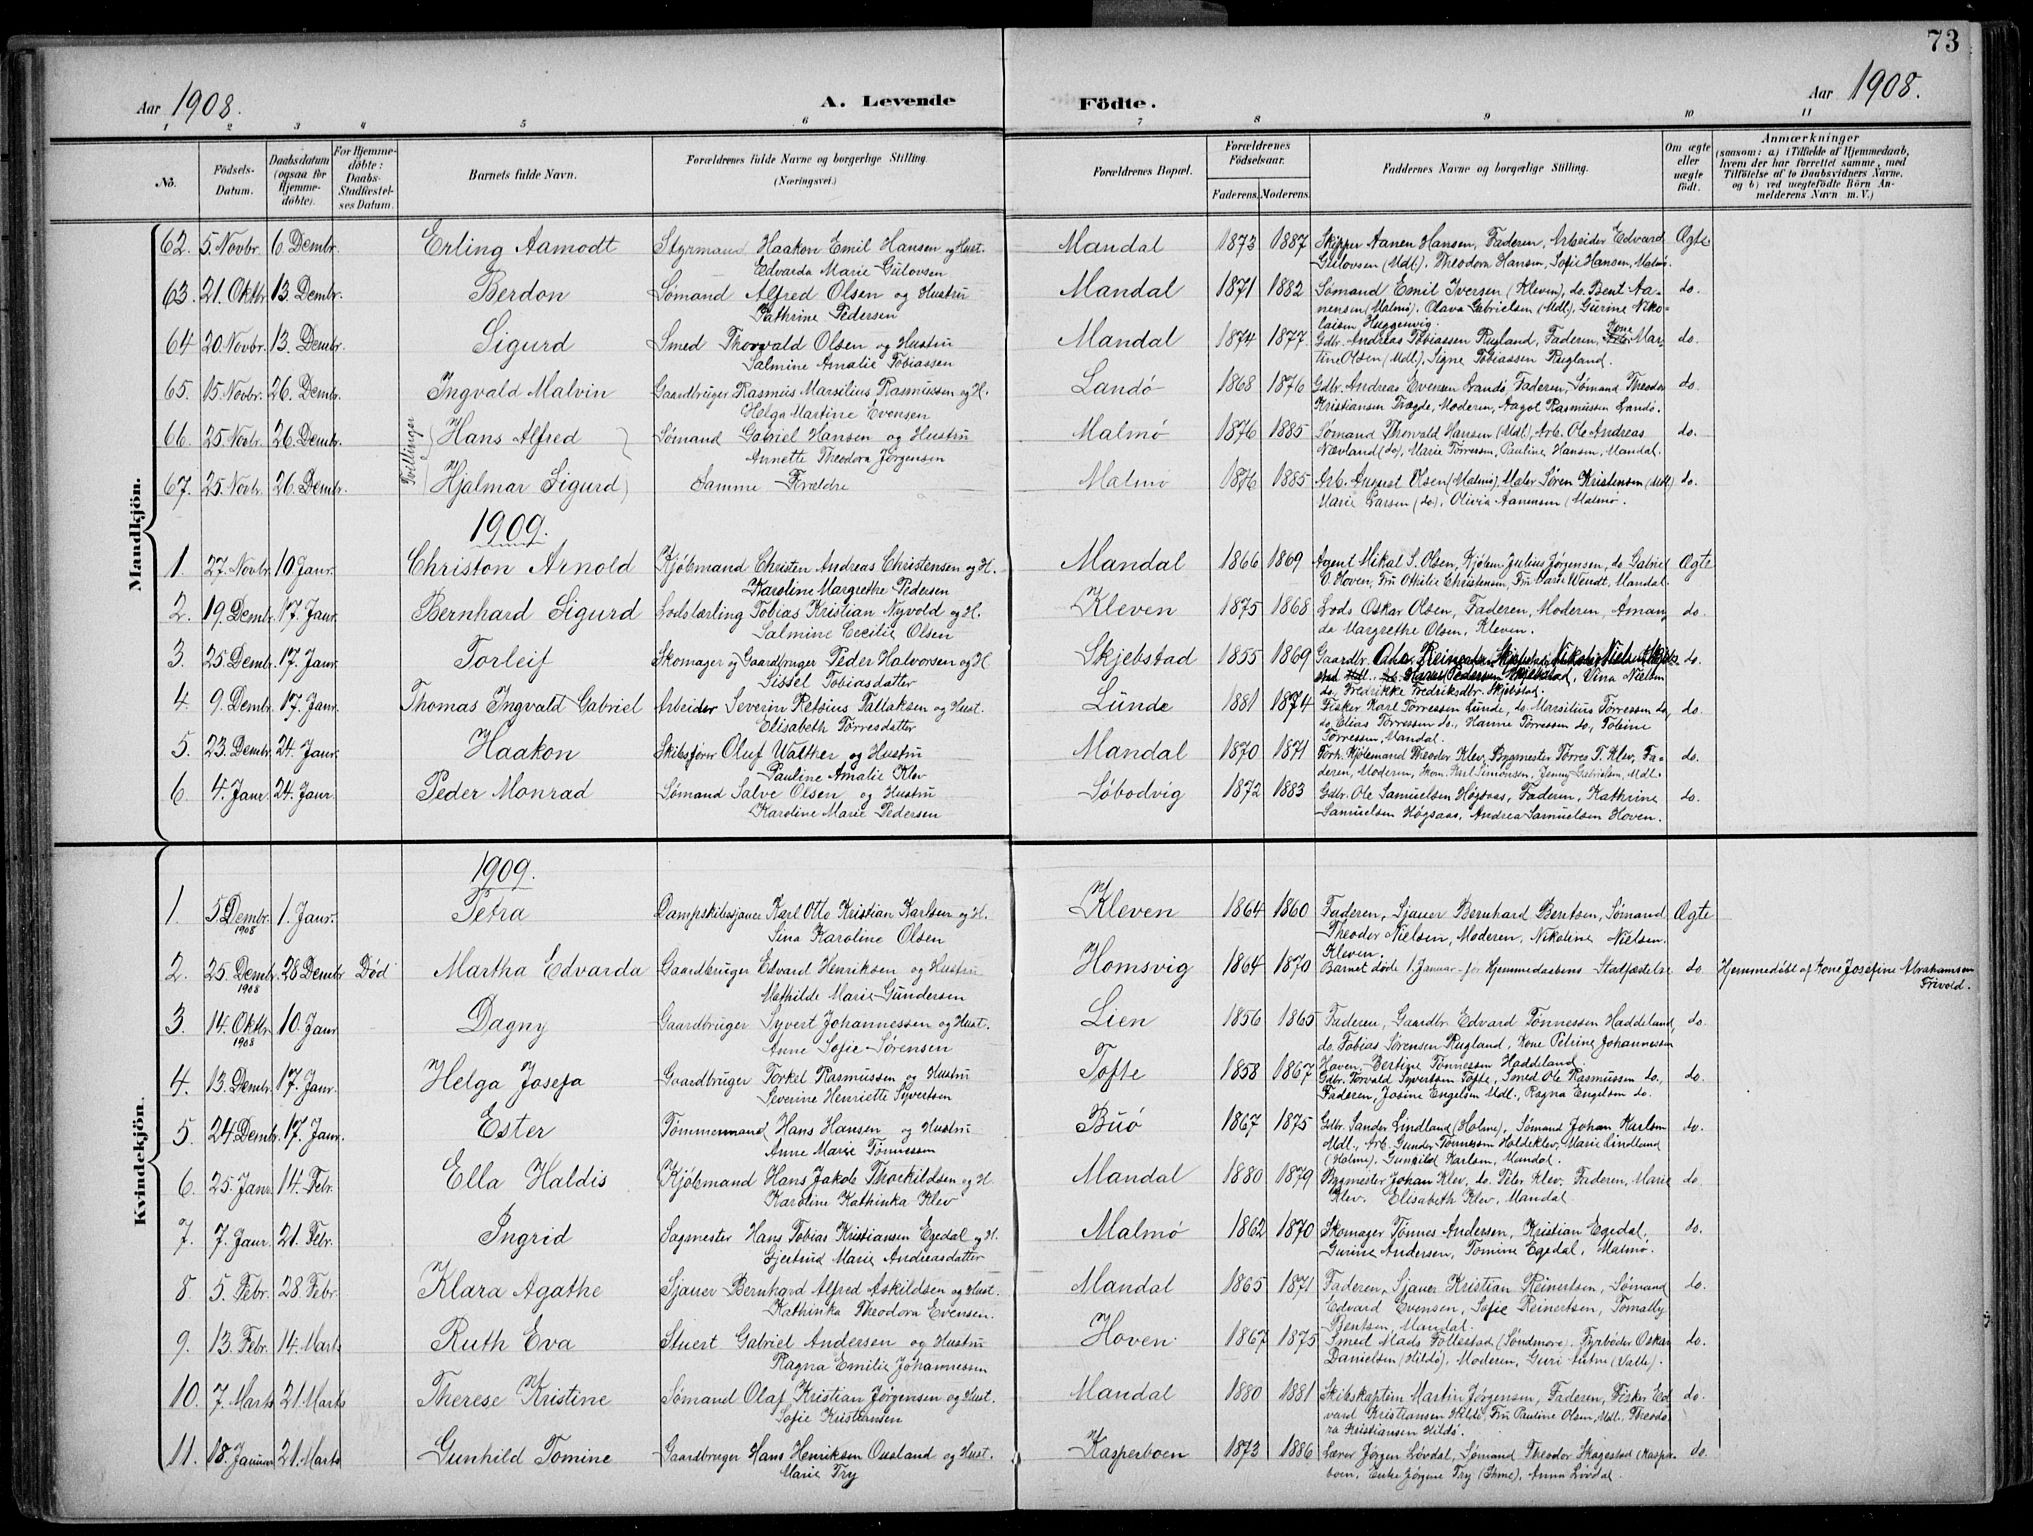 73
Aar 1908. A. Levende Födte. Aar 1908.
1 2 3 4 5 6 7 8 9 10 11
No. Födsels-Datum. Daabsdatum (ogsaa for Hjemme-döbte). For Hjemme-döbte: Daabs-Stadfæstel-ses Datum. Barnets fulde Navn. Forældrenes fulde Navne og borgerlige Stilling. (Næringsvei.) Forældrenes Bopæl. Forældrenes Födselsaar. Faderens. Moderens. Faddernes Navne og borgerlige Stilling. Om ægte eller uægte födt. Anmærkninger (saasom: a) i Tilfælde af Hjemmedaab, hvem der har forrettet samme, med Tilföielse af to Daabsvidners Navne, og b) ved uægtefödte Börn An-melderens Navn m. V.)
Mandkjön.
62. 5 Novbr. 6. Dembr. Erling Aamodt Styrmand Haakon Emil Hansen og Hust. Mandal 1873 1887 Skipper Aanen Hansen, Faderen, Arbeider Edvard Ægte
Edvarda Marie Gulovsen Gulovsen (Mdl). Theodora Hansen, Sofie Hansen, Malmø.
63. 21. Oktbr. 13. Dembr. Berdon Sømand Alfred Olsen og Hustru Mandal 1871 1882 Sømand Emil Iversen (Kleven), do. Bent Aa- do.
Kathrine Pedersen nensen (Malmø). Olava Gabrielsen (Mdl), Gurine Niko-
laisen Huggenvig.
64 20. Novbr. 13. Dembr. Sigurd Smed Thorvald Olsen og Hustru Mandal 1874 1877 Gdbr. Andreas Tobiassen Rugland, Faderen, Kone Mar- do.
Salmine Amalie Tobiassen tine Olsen (Mdl), Signe Tobiassen Rugland.
65. 15. Novbr. 26. Dembr. Ingvald Malvin Gaardbruger Rasmus Marsilius Rasmussen og H. Landö 1868 1876 Gdbr. Andreas Evensen Landø, Faderen, Sømand Theodor do.
Helga Martine Evensen Kristiansen Trægde, Moderen, Aagot Rasmussen Landø.
Tvillinger
66. 25. Novbr. 26. Dembr. Hans Alfred Sømand Gabriel Hansen og Hustru Malmø 1876 1885 Sømand Thorvald Hansen (Mdl), Arb. Ole Andreas do.
Annette Theodora Jørgensen Nævland (do), Marie Tørresen, Pauline Hansen, Mandal.
67. 25. Novbr. 26. Dembr. Hjalmar Sigurd Samme Forældre Malmø 1876 1885 Arb. August Olsen (Malmø), Maler Søren Kristensen (Mdl) do.
Marie Larsen (do), Olivia Aanensen (Malmø).
1909.
1. 27. Novbr. 10 Janr. Christon Arnold Kjøbmand Christen Andreas Christensen og H. Mandal 1866 1869 Agent Mikal S. Olsen, Kjøbm. Julius Jørgensen, do Gabriel Ægte
Karoline Margrethe Pedersen Hoven, Fru Othilie Christensen, Fru Wendt, Mandal.
2. 19. Dembr. 17. Janr. Bernhard Sigurd Lodslærling Tobias Kristian Nyvold og H. Kleven 1875 1868 Lods Oskar Olsen, Faderen, Moderen, Aman do.
Salmine Cecilie Olsen da Margrethe Olsen, Kleven.
3. 25. Dembr. 17. Janr. Torleif Skomager og Gaardbruger Peder Halvorsen og H Skjebstad 1855 1869 Gaardbr. do.
Sissel Tobiasdatter Pedersen Skjebstad, Vina Nielsen
do, Fredrikke Fredriksdtr. Skjebstad.
4. 9. Dembr. 17. Janr. Thomas Ingvald Gabriel Arbeider Severin Retsius Tallaksen og Hust. Lunde 1881 1874 Fisker Karl Tørressen Lunde, do. Marsilius Tørressen do, do.
Elisabeth Torresdatter do. Elias Tørressen do, Hanne Torressen do, Tobine
Tørressen, Mandal.
5. 23. Dembr. 24. Janr. Haakon Skibsfører Oluf Walther og Hustru Mandal 1870 1871 Forh. Kjøbmand Theodor Klev, Bygmester Tørres T. Klev, Fa- do.
Pauline Amalie Klev deren, Moderen, Karl Simonsen, Jenny Gabrielsen, Mdl.
6. 4. Janr. 24. Janr. Peder Monrad Sømand Salve Olsen og Hustru Søbodvig 1872 1883 Gdbr. Ole Samuelsen Høgsaas, Faderen, Kathrine do.
Karoline Marie Pedersen Samuelsen Høgsaas, Andrea Samuelsen Hoven.
Kvindekjön.
1909.
1. 5 Dembr. 1908 1. Janr. Petra Dampskibssjauer Karl Otto Kristian Karlsen og H. Kleven 1864 1860 Faderen, Sjauer Bernhard Berntsen, Sømand Ægte
Sina Karoline Olsen Theodor Nielsen, Moderen, Nikoline Nielsen.
Kleven.
2. 25. Dembr. 1908 28 Dembr Död Martha Edvarda Gaardbruger Edvard Henriksen og Hustru Homsvig 1864 1870 Barnet døde 1. Januar før Hjemmedaabens Stadfæstelse do. Hjemmedøbt af Kone Josefine Abrahamsen
Mathilde Marie Gundersen Frivold.
3. 14. Oktbr. 1908 10. Janr. Dagny Gaardbruger Syvert Johannessen og Hust. Lien 1856 1865 Faderen, Gaardbr. Edvard Tønnessen Haddeland, do.
Anne Sofie Sørensen do. Tobias Sørensen Rugland, Kone Petrine Johannessen
Hoven, Bertine Tønnessen Haddeland.
4. 13. Dembr. 17. Janr. Helga Josefa Gaardbruger Torkel Rasmussen og Hustru Tofte 1858 1867 Gdbr. Torvald Syvertsen Tofte, Smed Ole Rasmussen do., do.
Severine Henriette Syvertsen Faderen, Josine Engelsen Mdl., Ragna Engelsen do.
5. 24. Dembr. 17. Janr. Ester Tømmermand Hans Hansen og Hustru Buö 1867 1875 Gdbr. Sander Lindland (Holme), Sømand Johan Karlsen do.
Anne Marie Tønnessen Mdl., Arb. Gunder Tønnessen Holdeklev, Marie Lindland
(Holme), Gunhild Karlsen, Mandal.
6. 25. Janr. 14. Febr. Ella Haldis Kjøbmand Hans Jakob Thorkildsen og H. Mandal 1880 1879 Bygmester Johan Klev, do. Peter Klev, Faderen, Marie do.
Karoline Kathinka Klev Klev. Elisabeth Klev, Mandal.
7. 7. Janr. 21. Febr. Ingrid Sagmester Hans Tobias Kristiansen Egedal og H. Malmø 1862 1870 Skomager Tønnes Andersen, Kristian Egedal, do.
Gjertrud Marie Andreasdatter Gurine Andersen, Tomine Egedal, Malmø.
8 5. Febr. 28. Febr. Klara Agathe Sjauer Bernhard Alfred Askildsen og Hust. Mandal 1865 1871 Faderen, Sjauer Kristian Reinertsen, Sømand do.
Kathinka Theodora Evensen. Edvard Evensen, Sofie Reinertsen, Tomally
Bentsen, Mandal.
9. 13. Febr. 14. Marts Ruth Eva Stuert Gabriel Andersen og Hustru Hoven. 1867 1875 Smed Mads Follestad (Søndmøre). Fyrbøder Oskar do.
Ragna Emilie Johannessen Danielsen (Hildø), Moderen, Guri (Valle).
10. 7. Marts 21. Marts Therese Kristine Sømand Olaf Kristian Jørgensen og Hust. Mandal 1880 1881 Skibskaptein Martin Jørgensen, Faderen, Fisker Ed do.
Sofie Kristiansen vard Kristiansen Hildø, Fru Pauline Olsen, Mdl. Theodo
ra Kristiansen Hildø.
11. 18. Januar 21. Marts Gunhild Tomine Gaardbruger Hans Henriksen Ousland og Hust. Kasperboen 1873 1886 Lærer Jørgen Løvdal, Sømand Theodor Skagestad (Kaspa- do.
Marie Try boen, Enke Jørgine Try, Anna Løvdal.